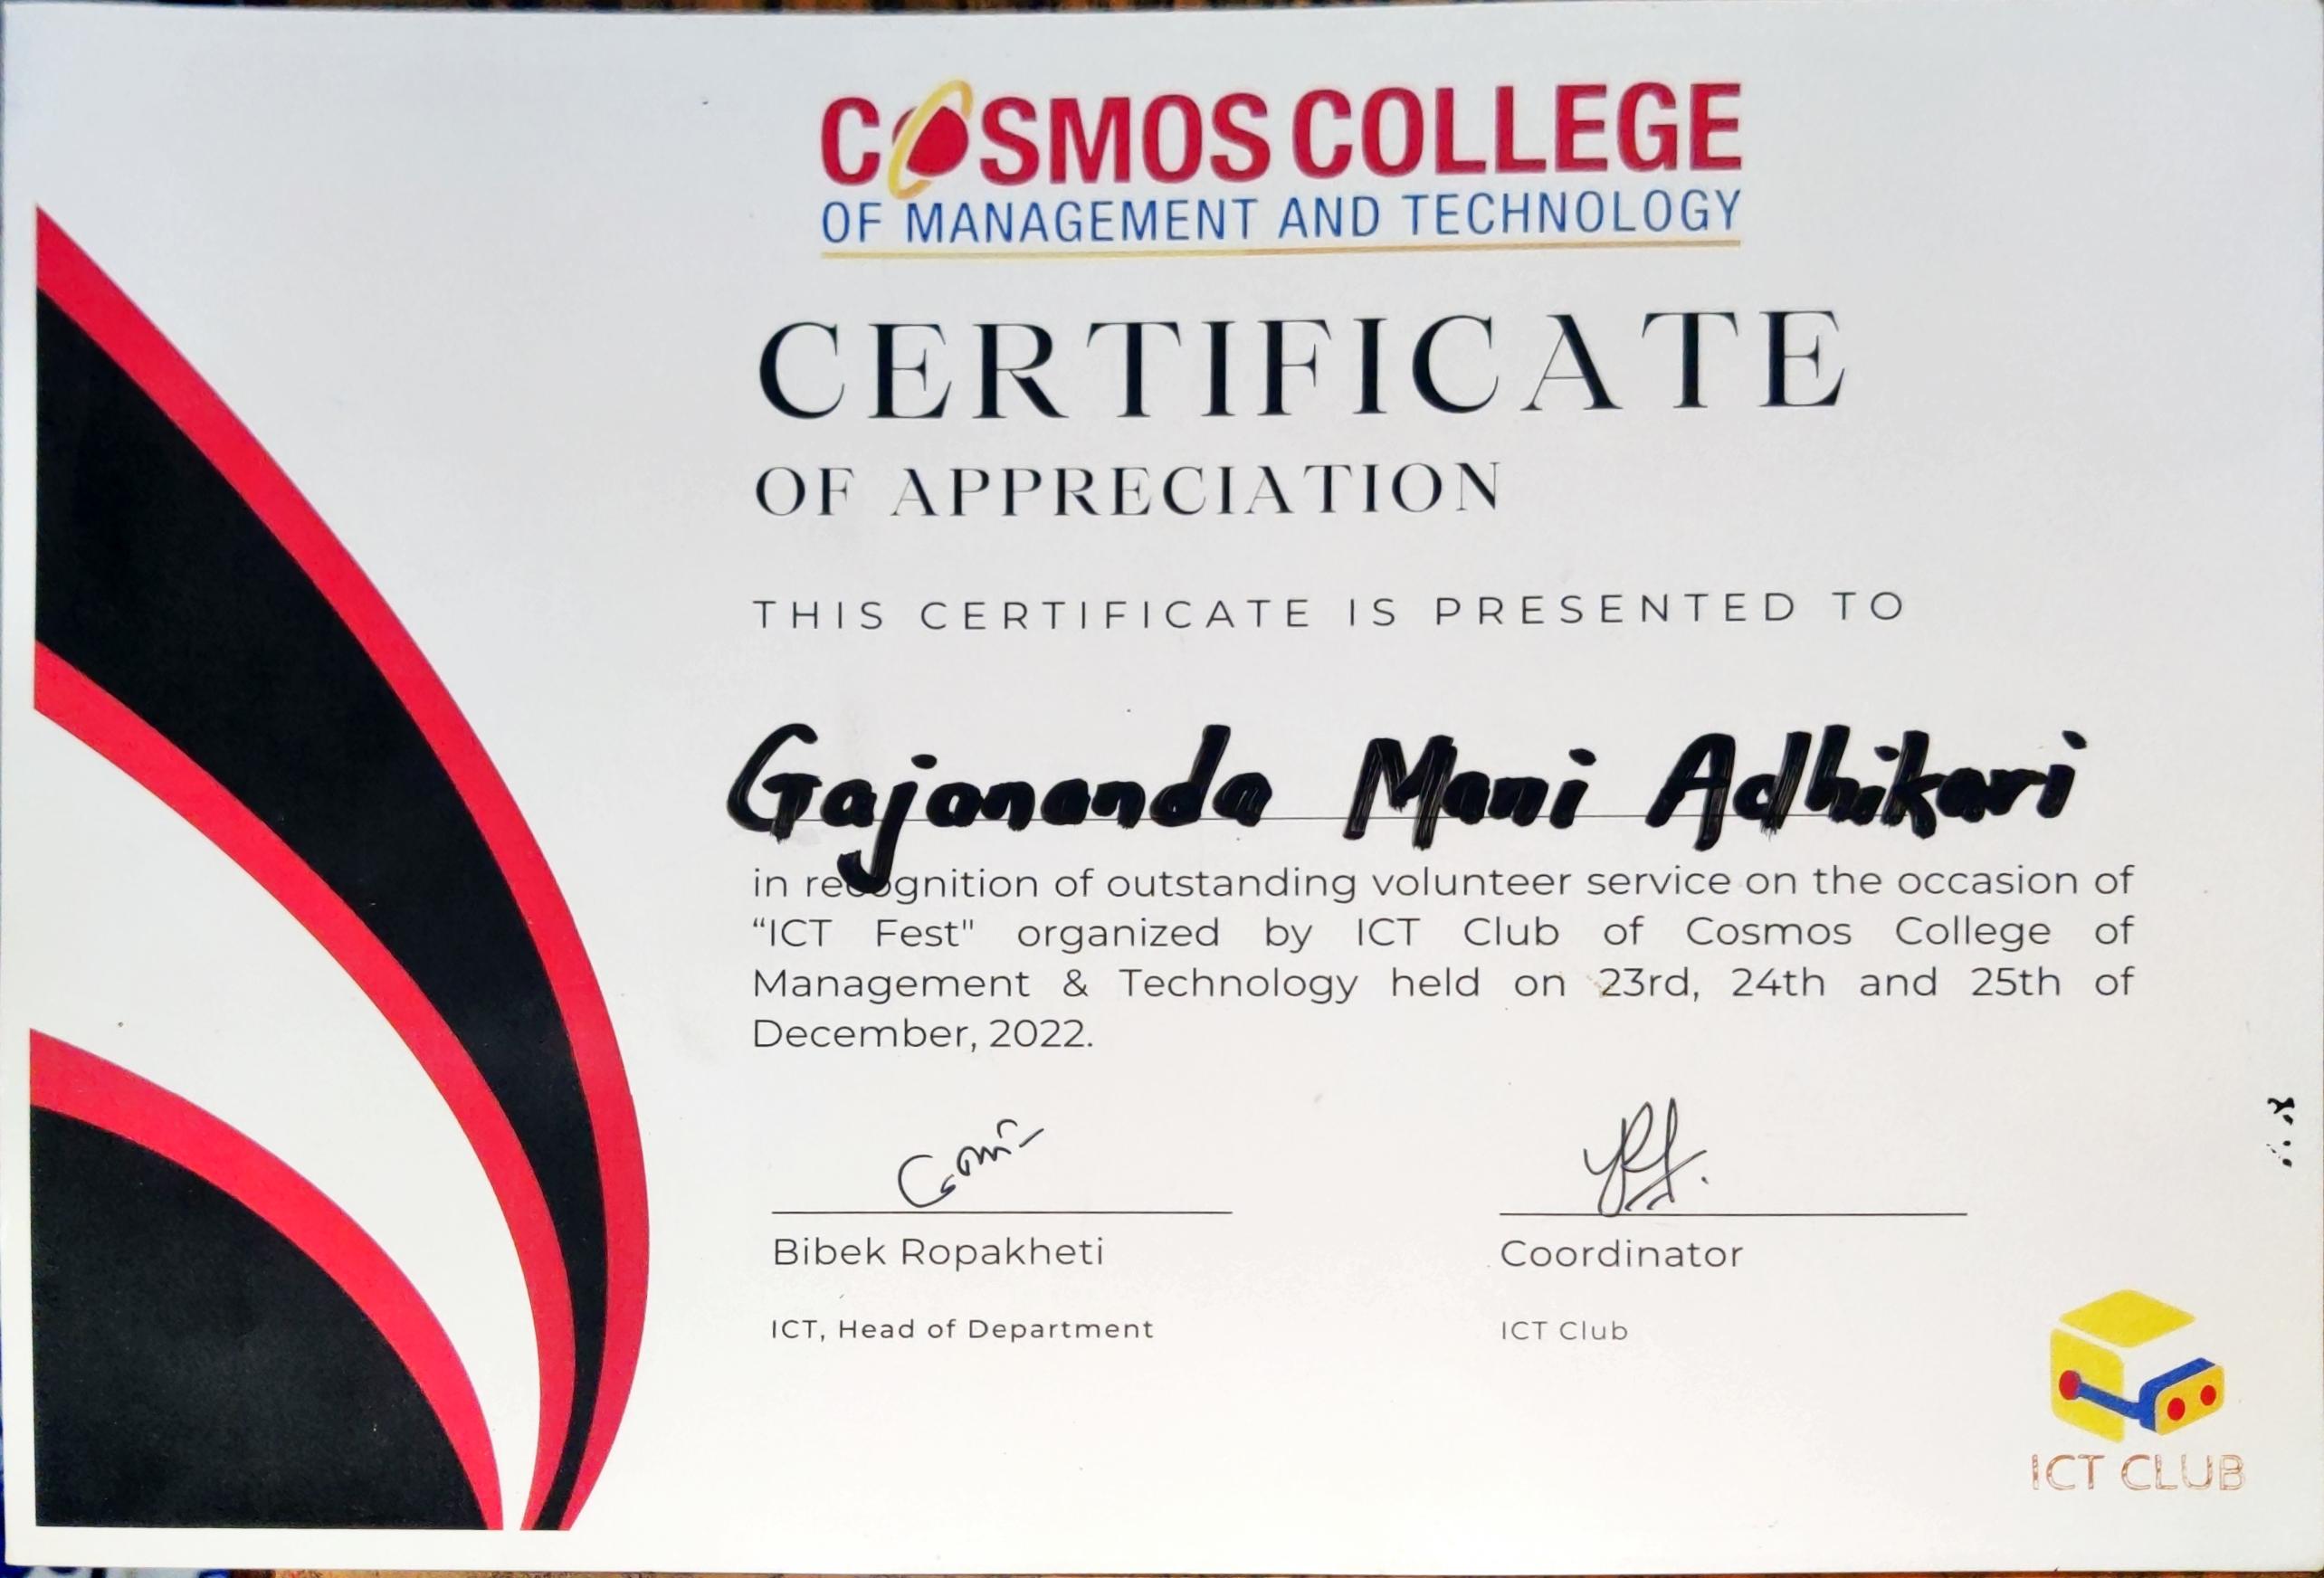 COSMOS COLLEGE
OF MANAGEMENT AND TECHNOLOGY
CERTIFICATE
OF APPRECIATION
THIS CERTIFICATE IS PRESENTED TO
Gajananda Mani Adhikari
in recognition of outstanding volunteer service on the occasion of
“ICT Fest" organized by ICT Club of Cosmos College of
Management & Technology held on 23rd, 24th and 25th of
December, 2022.
Bibek Ropakheti
Coordinator
ICT, Head of Department
ICT Club
ICT CLUB